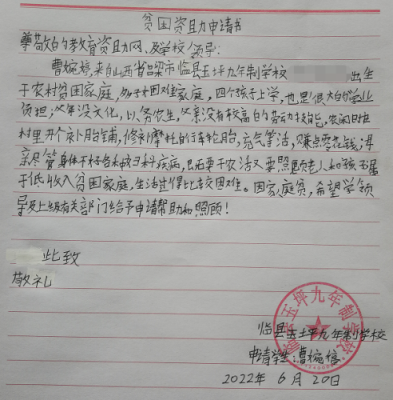 贫困资助申请书
尊敬的教育资助网、及学校领导:
曹婉婷,来自山西省吕梁市临县玉坪九年制学校 出生
于农村贫困家庭,多子女困难家庭,四个孩子上学,也是很大的学业
负担;父母没文化,以务农生,父亲没有较高的劳动技能,农闲时在
村里开个补胎铺,修补摩托的行车轮胎,充气等活,赚点零花钱;母
亲尽管身体不好患有妇科疾病,家属
于低收入贫困家庭,生活过得比较困难。因家庭贫,希望学领
导及上级有关部门给予申请帮助和照顾!
此致
敬礼
临县玉坪九年制学校
申请学生:曹婉婷
2022年 6月 20日
玉坪九年制学校